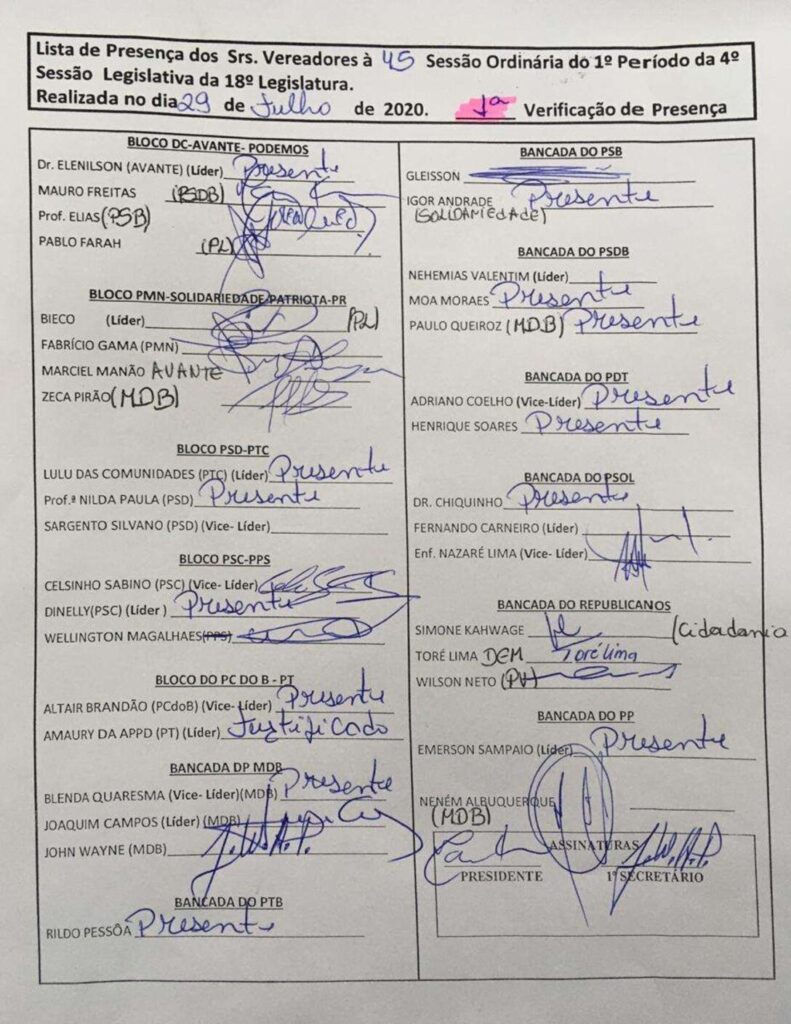 Lista de Presença dos Srs. Vereadores à 45 Sessão Ordinária do 1º Período da 4º
Sessão Legislativa da 18º Legislatura.
Realizada no dia 29 de Julho de 2020. 1ª Verificação de Presença
BLOCO DC-AVANTE- PODEMOS
Dr. ELENILSON (AVANTE) (Líder) Presente
MAURO FREITAS (PSDB)
Prof. ELIAS (PSB)
PABLO FARAH (PL)
BLOCO PMN-SOLIDARIEDADE/PATRIOTA-PR
BIECO (Líder) (PL)
FABRÍCIO GAMA (PMN)
MARCIEL MANÃO AVANTE
ZECA PIRÃO (MDB)
BLOCO PSD-PTC
LULU DAS COMUNIDADES (PTC) (Líder) Presente
Prof.ª NILDA PAULA (PSD) Presente
SARGENTO SILVANO (PSD) (Vice- Líder)
BLOCO PSC-PPS
CELSINHO SABINO (PSC) (Vice- Líder)
DINELLY(PSC) (Líder ) Presente
WELLINGTON MAGALHAES(PPS)
BLOCO DO PC DO B - PT
ALTAIR BRANDÃO (PCdoB) (Vice- Líder) Presente
AMAURY DA APPD (PT) (Líder) Justificado
BANCADA DP MDB
BLENDA QUARESMA (Vice- Líder)(MDB) Presente
JOAQUIM CAMPOS (Líder) (MDB)
JOHN WAYNE (MDB) J.W.A.P.
BANCADA DO PTB
RILDO PESSÔA Presente
BANCADA DO PSB
GLEISSON
IGOR ANDRADE Presente
(SOLIDARIEDADE)
BANCADA DO PSDB
NEHEMIAS VALENTIM (Líder)
MOA MORAES Presente
PAULO QUEIROZ (MDB) Presente
BANCADA DO PDT
ADRIANO COELHO (Vice-Líder) Presente
HENRIQUE SOARES Presente
BANCADA DO PSOL
DR. CHIQUINHO Presente
FERNANDO CARNEIRO (Líder)
Enf. NAZARÉ LIMA (Vice- Líder)
BANCADA DO REPUBLICANOS
SIMONE KAHWAGE (Cidadania
TORÉ LIMA DEM Toré Lima
WILSON NETO (PV)
BANCADA DO PP
EMERSON SAMPAIO (Líder) Presente
NENÉM ALBUQUERQUE
(MDB)
ASSINATURAS J.W.A.P.
PRESIDENTE 1º SECRETÁRIO